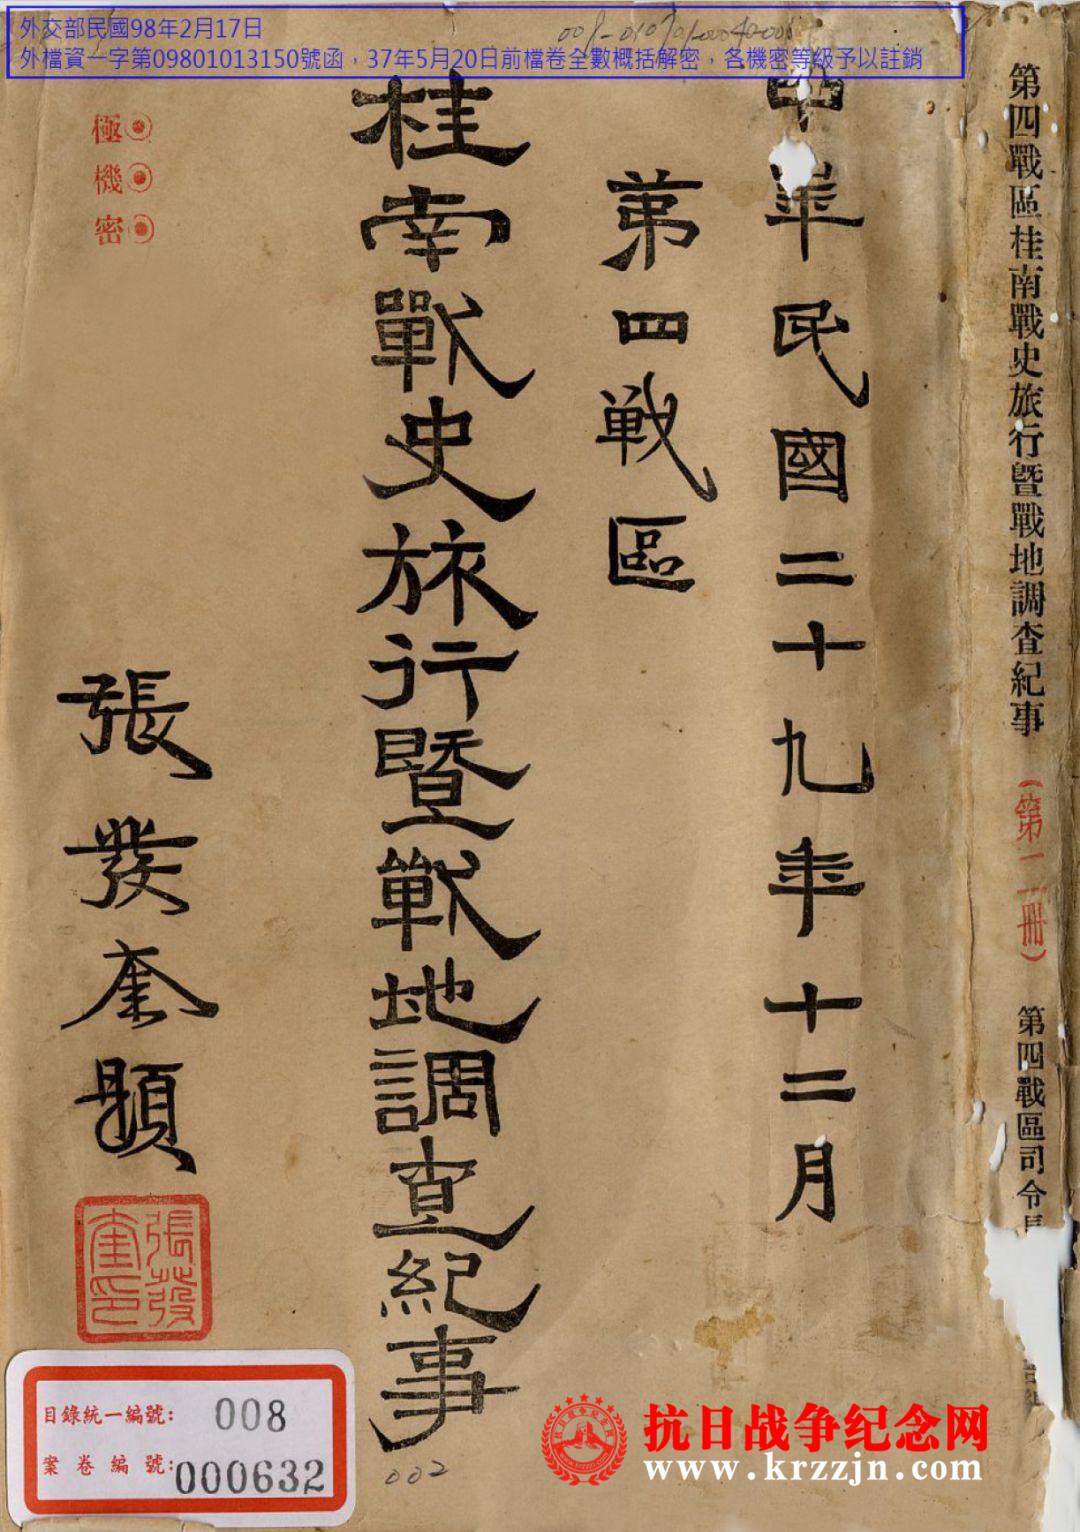 外交部民國98年2月17日
外檔資一字第09801013150號函，37年5月20日前檔卷全數概括解密，各機密等級予以註銷
第四戰區桂南戰史旅行暨戰地調查紀事
（第二冊）
第四戰區司令長
中華民國二十九年十二月
第四战區
桂南戰史旅行暨戰地調查紀事
極機密
張發奎題
張發奎印
目錄統一編號：008
案卷編號：000632
002
抗日战争纪念网
www.krzzjn.com